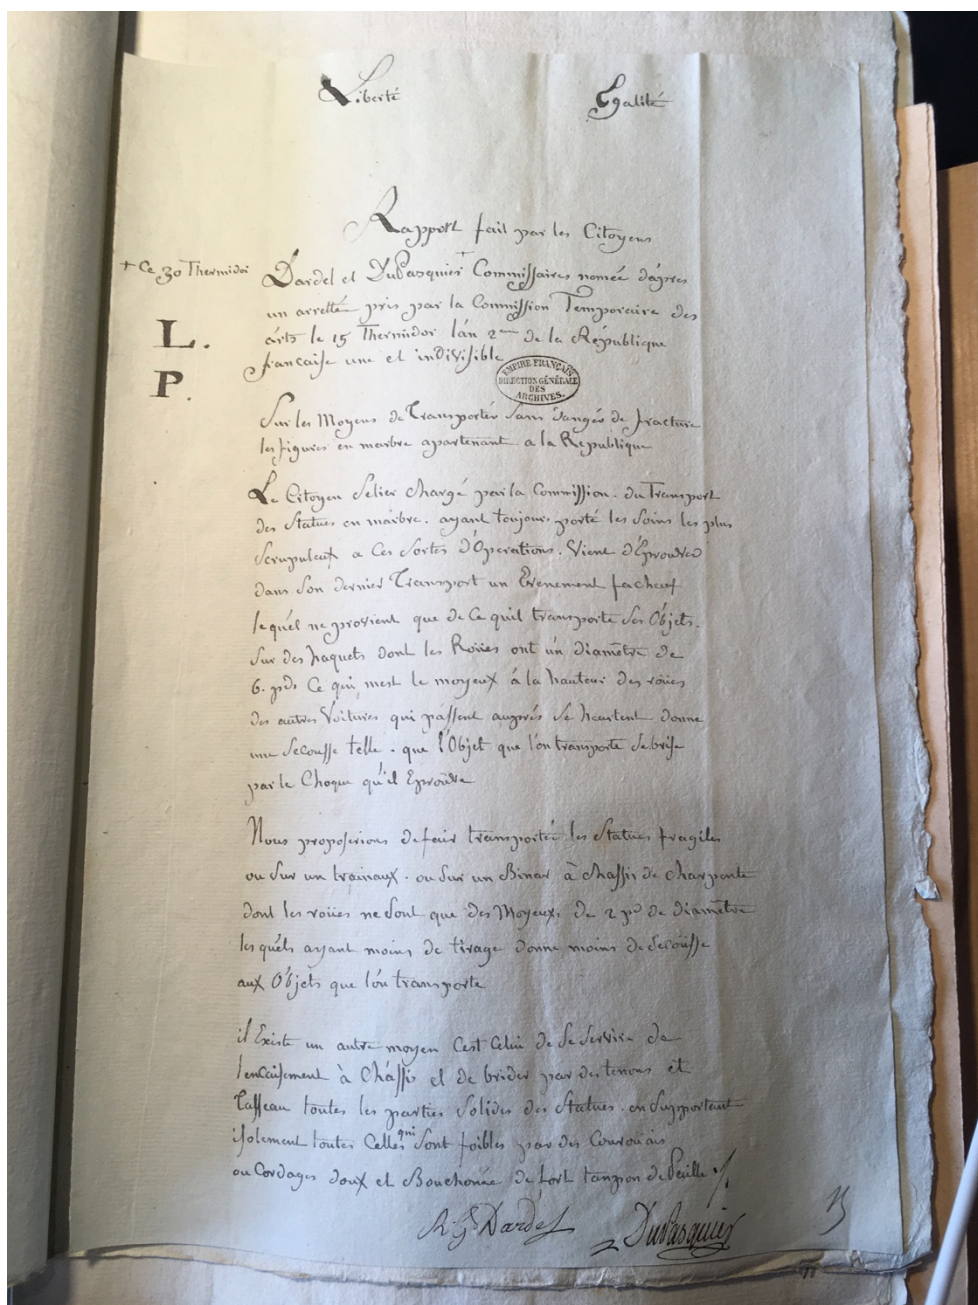 Liberté Egalité
Rapport fait par les Citoyens
+ Ce 30 Thermidor
Dardel et DuPasquier + Commissaires nomée dápres
un arretté pris par la Commission Temporaire des
árts le 15 Thermidor lán 2eme de la République
francaise une et indivisible
L.
P.
EMPIRE FRANÇAIS
DIRECTION GÉNÉRALE
DES
ARCHIVES.
Sur les Moyens de Transporter Sans dangér de fracture
les figures en marbre apartenant a la Republique
Le Citoyen Selier chargé par la Commission. du Transport
des Statues en marbre. ayant toujours porté les Soins les plus
Scrupuleux a Ces Sortes d'Operations. Vient d'Eprouver
dans Son dernier Transport un Evenement facheux
lequél ne provient que de Ce quil transporte Ses Objets.
Sur des haquets dont les Roües ont un diamêtre de
6. pds Ce qui mest le moyeux á la hauteur des roües
des autres Voitures qui passent auprés Se heurtent donne
une Secousse telle. que l'Objet que l'on transporte Se brise
par le Choque qu'il Eprouve
Nous proposerions de fair transporté les Statues fragiles
ou Sur un trainaux. ou Sur un Binar à chassis de charpente
dont les roües ne Sont que des Moyeux, de 2 pd de diamêtre
lesquéls ayant moins de tirage donne moins de Secousse
aux Objets que l'on transporte
il Existe un autre moyen C'est Celui de Se Servire de
lencaisement à Châssis et de brider par des tenons et
Tasseau toutes les parties Solides des Statues. en Supportant
isolement toutes Celles qui Sont foibles par des Courouais
ou Cordages doux et Bouchonée de fort tanpon de Peille ./.
R. G Dardel DuPasquier